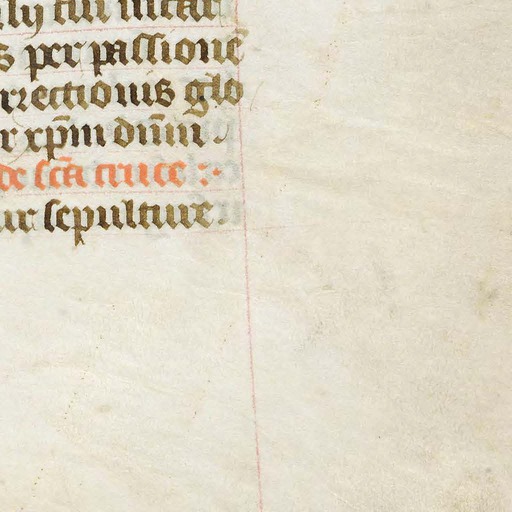 filij tui incar
s per passionē
rrectionis glo
r xp̄m dn̄m
de sc̄a cruce
ur sepulture